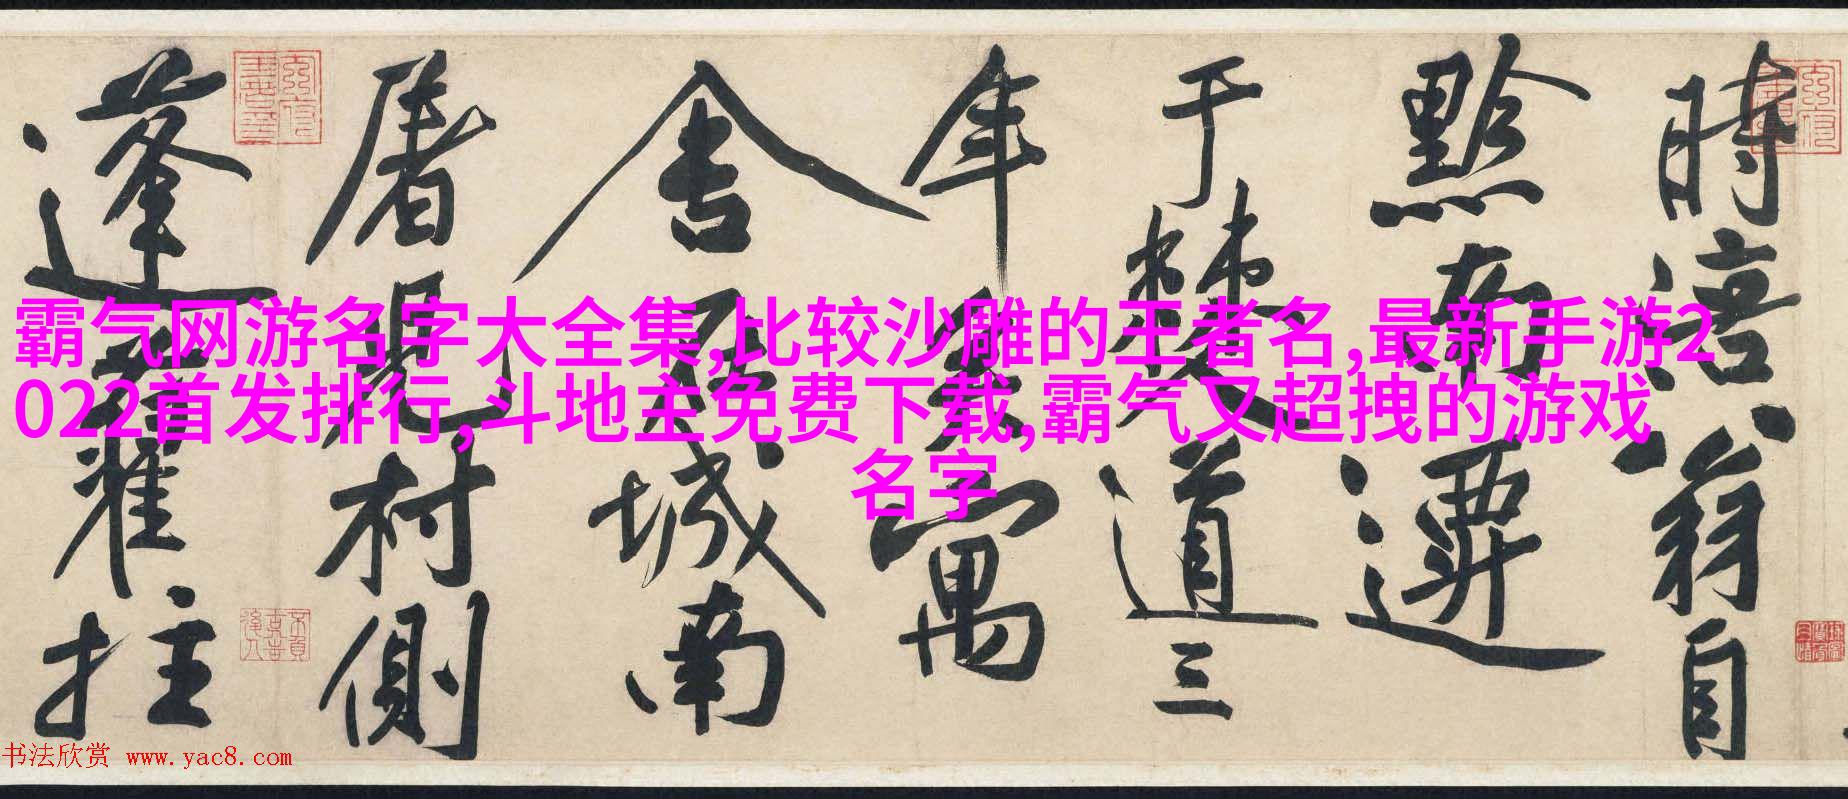 時涪翁自
黔南遷
于僰道三
年矣寓
舍在城南
屠兒村側
蓬藋拄
霸气网游名字大全集,比较沙雕的王者名,最新手游2
022首发排行,斗地主免费下载,霸气又超拽的游戏
名字
书法欣赏 www.yac8.com